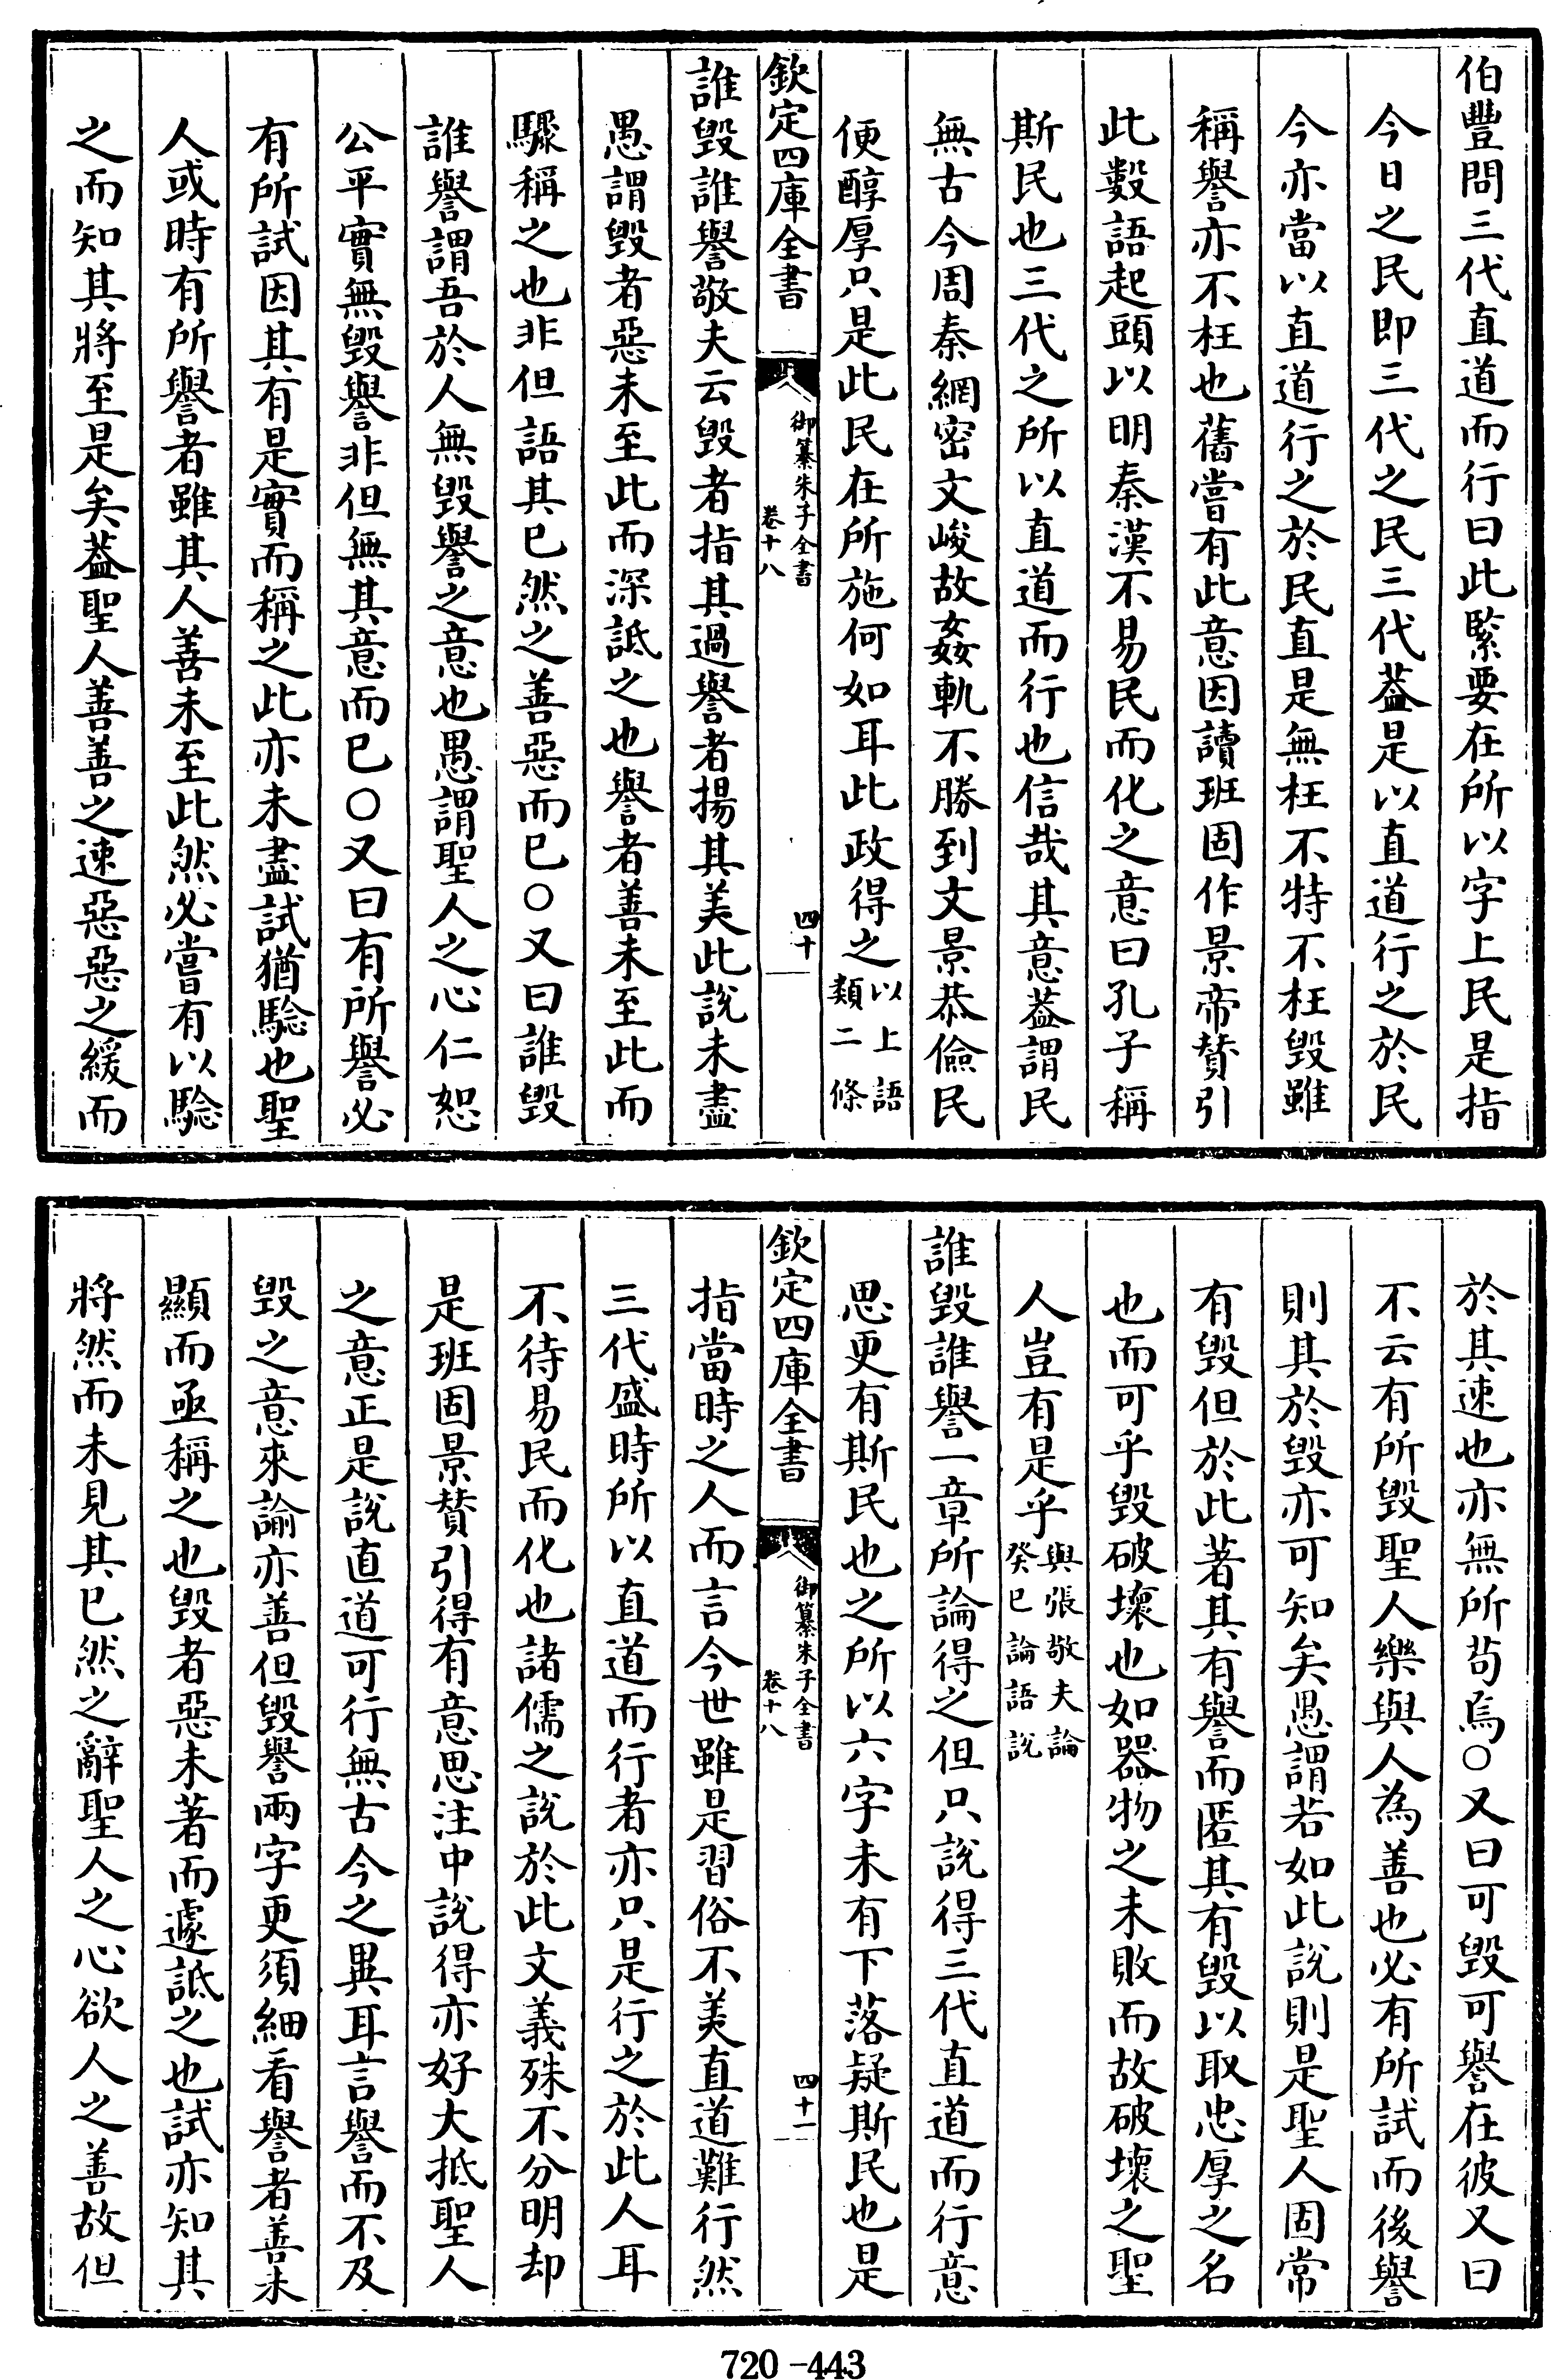 伯豐問三代直道而行曰此緊要在所以字上民是指
今日之民即三代之民三代葢是以直道行之於民
今亦當以直道行之於民直是無枉不特不枉毀雖
稱譽亦不枉也舊嘗有此意因讀班固作景帝贊引
此數語起頭以明秦漢不易民而化之意曰孔子稱
斯民也三代之所以直道而行也信哉其意葢謂民
無古今周秦網密文峻故姦軌不勝到文景恭儉民
便醇厚只是此民在所施何如耳此政得之以上語
類二條
欽定四庫全書
御纂朱子全書
卷十八
四十
誰毀誰譽敬夫云毀者指其過譽者揚其美此說未盡
愚謂毀者惡未至此而深詆之也譽者善未至此而
驟稱之也非但語其已然之善惡而已○又曰誰毀
誰譽謂吾於人無毀譽之意也愚謂聖人之心仁恕
公平實無毀譽非但無其意而已○又曰有所譽必
有所試因其有是實而稱之此亦未盡試猶驗也聖
人或時有所譽者雖其人善未至此然必嘗有以驗
之而知其將至是矣葢聖人善善之速惡惡之緩而
於其速也亦無所苟焉○又曰可毀可譽在彼又曰
不云有所毀聖人樂與人為善也必有所試而後譽
則其於毀亦可知矣愚謂若如此說則是聖人固常
有毀但於此著其有譽而匿其有毀以取忠厚之名
也而可乎毀破壞也如器物之未敗而故破壞之聖
人豈有是乎與張敬夫論
癸巳論語說
誰毀誰譽一章所論得之但只說得三代直道而行意
思更有斯民也之所以六字未有下落疑斯民也是
欽定四庫全書
御纂朱子全書
卷十八
四十一
指當時之人而言今世雖是習俗不美直道難行然
三代盛時所以直道而行者亦只是行之於此人耳
不待易民而化也諸儒之說於此文義殊不分明却
是班固景贊引得有意思注中說得亦好大抵聖人
之意正是說直道可行無古今之異耳言譽而不及
毀之意來諭亦善但毀譽兩字更須細看譽者善未
顯而亟稱之也毀者惡未著而遽詆之也試亦知其
將然而未見其已然之辭聖人之心欲人之善故但
720-443